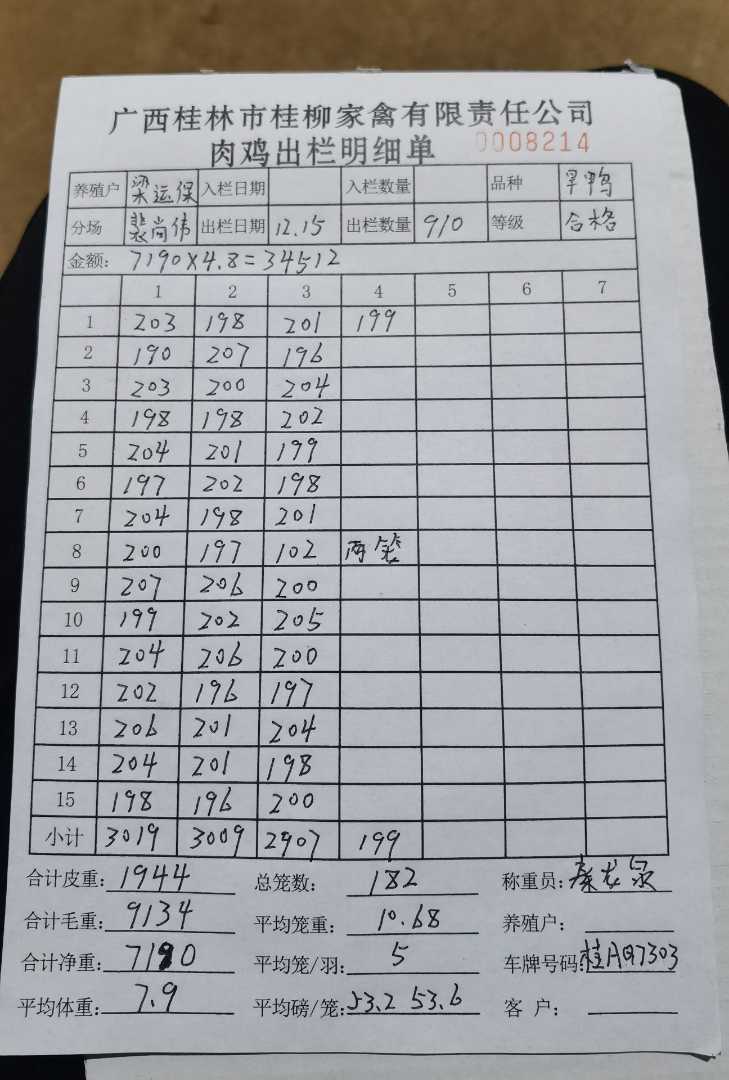 广西桂林市桂柳家禽有限责任公司
肉鸡出栏明细单 0008214
养殖户 梁运保 入栏日期 入栏数量 品种 旱鸭
分场 裴尚伟 出栏日期 12.15 出栏数量 910 等级 合格
金额: 7190×4.8=34512
1 2 3 4 5 6 7
1 203 198 201 199
2 190 207 196
3 203 200 204
4 198 198 202
5 204 201 199
6 197 202 198
7 204 198 201
8 200 197 102 两笼
9 207 206 200
10 199 202 205
11 204 206 200
12 202 196 197
13 206 201 204
14 204 201 198
15 198 196 200
小计 3019 3009 2907 199
合计皮重: 1944 总笼数: 182 称重员: 秦龙
合计毛重: 9134 平均笼重: 10.68 养殖户:
合计净重: 7190 平均笼/羽: 5 车牌号码: 桂AQ7303
平均体重: 7.9 平均磅/笼: 53.2 53.6 客 户: